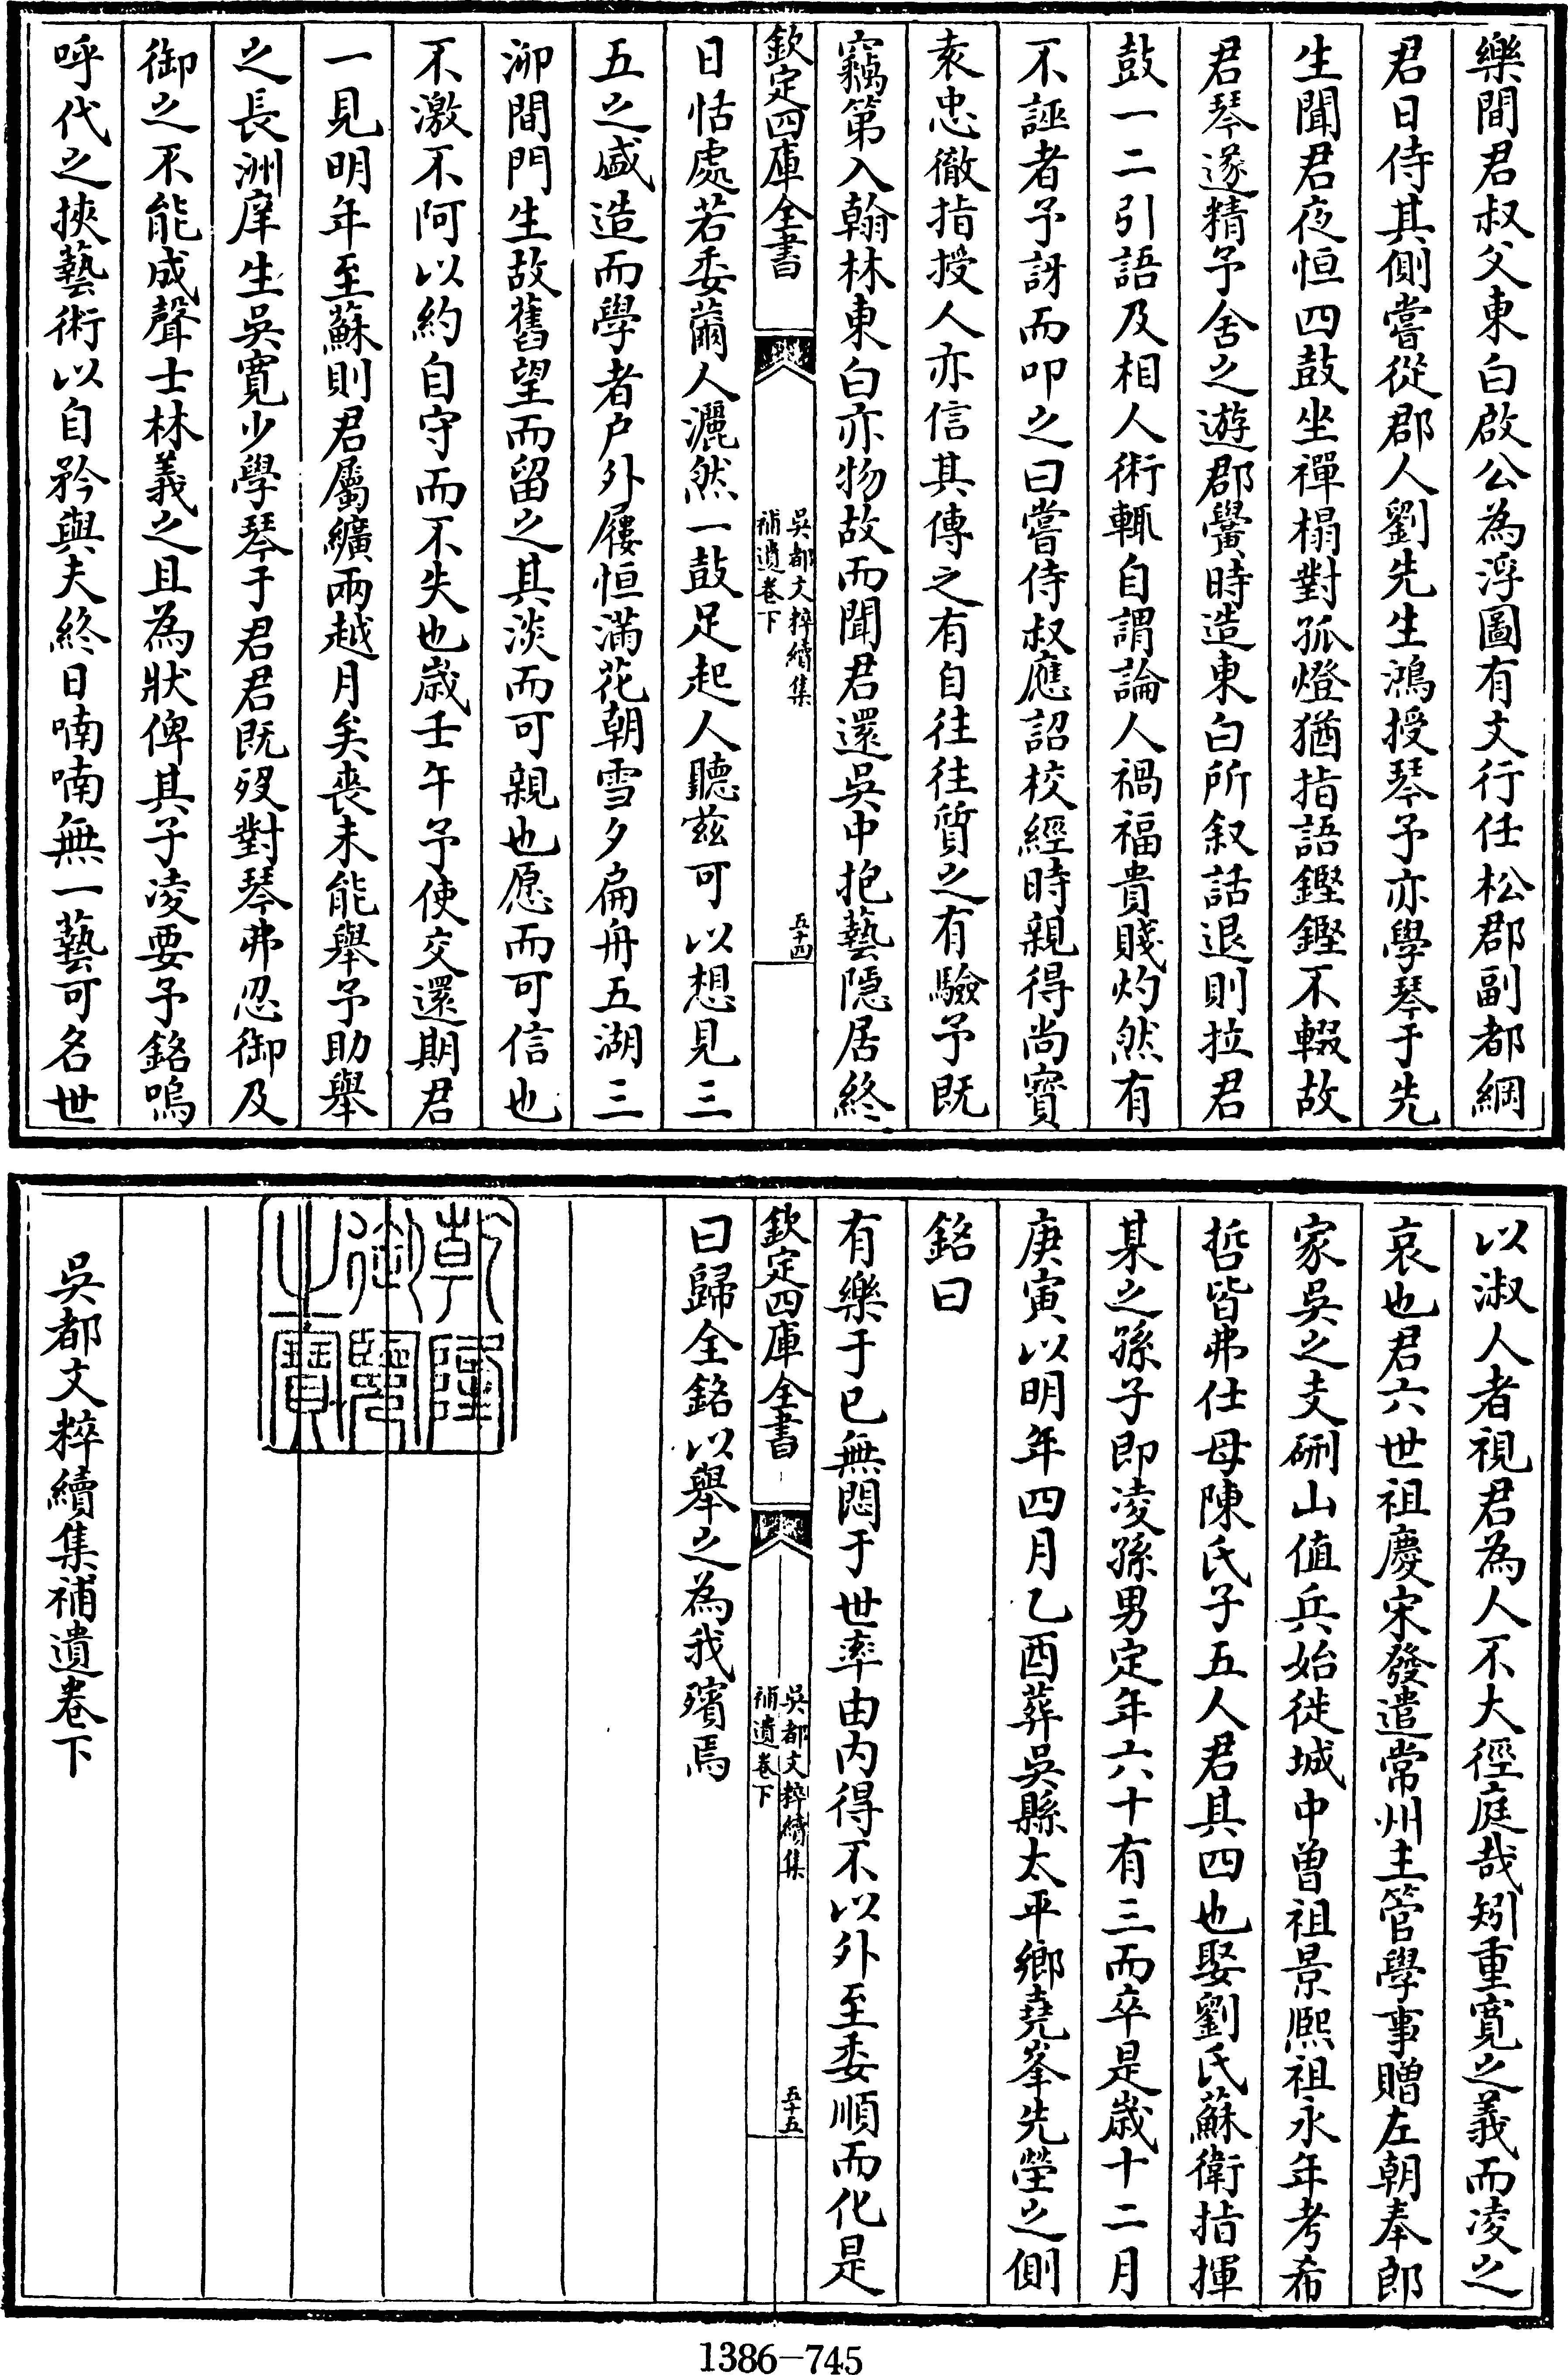 樂間君叔父東白啟公為浮圖有文行任松郡副都綱
君日侍其側嘗從郡人劉先生鴻授琴予亦學琴于先
生聞君夜恒四鼓坐禪榻對孤燈猶指語鏗鏗不輟故
君琴遂精予舍之遊郡黌時造東白所叙話退則拉君
鼓一二引語及相人術輒自謂論人禍福貴賤灼然有
不誣者予訝而叩之曰嘗侍叔應詔校經時親得尚寶
袁忠徹指授人亦信其傳之有自往往質之有驗予既
竊第入翰林東白亦物故而聞君還吳中抱藝隱居終
欽定四庫全書
吳都文粹續集
補遺卷下
五十四
日恬處若委薾人灑然一鼓足起人聽兹可以想見三
五之盛造而學者户外屨恒滿花朝雪夕扁舟五湖三
泖間門生故舊望而留之其淡而可親也愿而可信也
不激不阿以約自守而不失也歲壬午予使交還期君
一見明年至蘇則君屬纊兩越月矣喪未能舉予助舉
之長洲庠生吳寛少學琴于君君既歿對琴弗忍御及
御之不能成聲士林義之且為狀俾其子凌要予銘嗚
呼代之挾藝術以自矜與夫終日喃喃無一藝可名世
以淑人者視君為人不大徑庭哉矧重寛之義而凌之
哀也君六世祖慶宋發遣常州主管學事贈左朝奉郎
家吳之支硎山值兵始徙城中曾祖景熈祖永年考希
哲皆弗仕母陳氏子五人君其四也娶劉氏蘇衛指揮
某之孫子即凌孫男定年六十有三而卒是歲十二月
庚寅以明年四月乙酉葬吳縣太平鄉堯峯先塋之側
銘曰
有樂于已無悶于世率由内得不以外至委順而化是
欽定四庫全書
吳都文粹續集
補遺卷下
五十五
曰歸全銘以舉之為我殯焉
乾隆
御覽
之寶
吳都文粹續集補遺卷下
1386-745